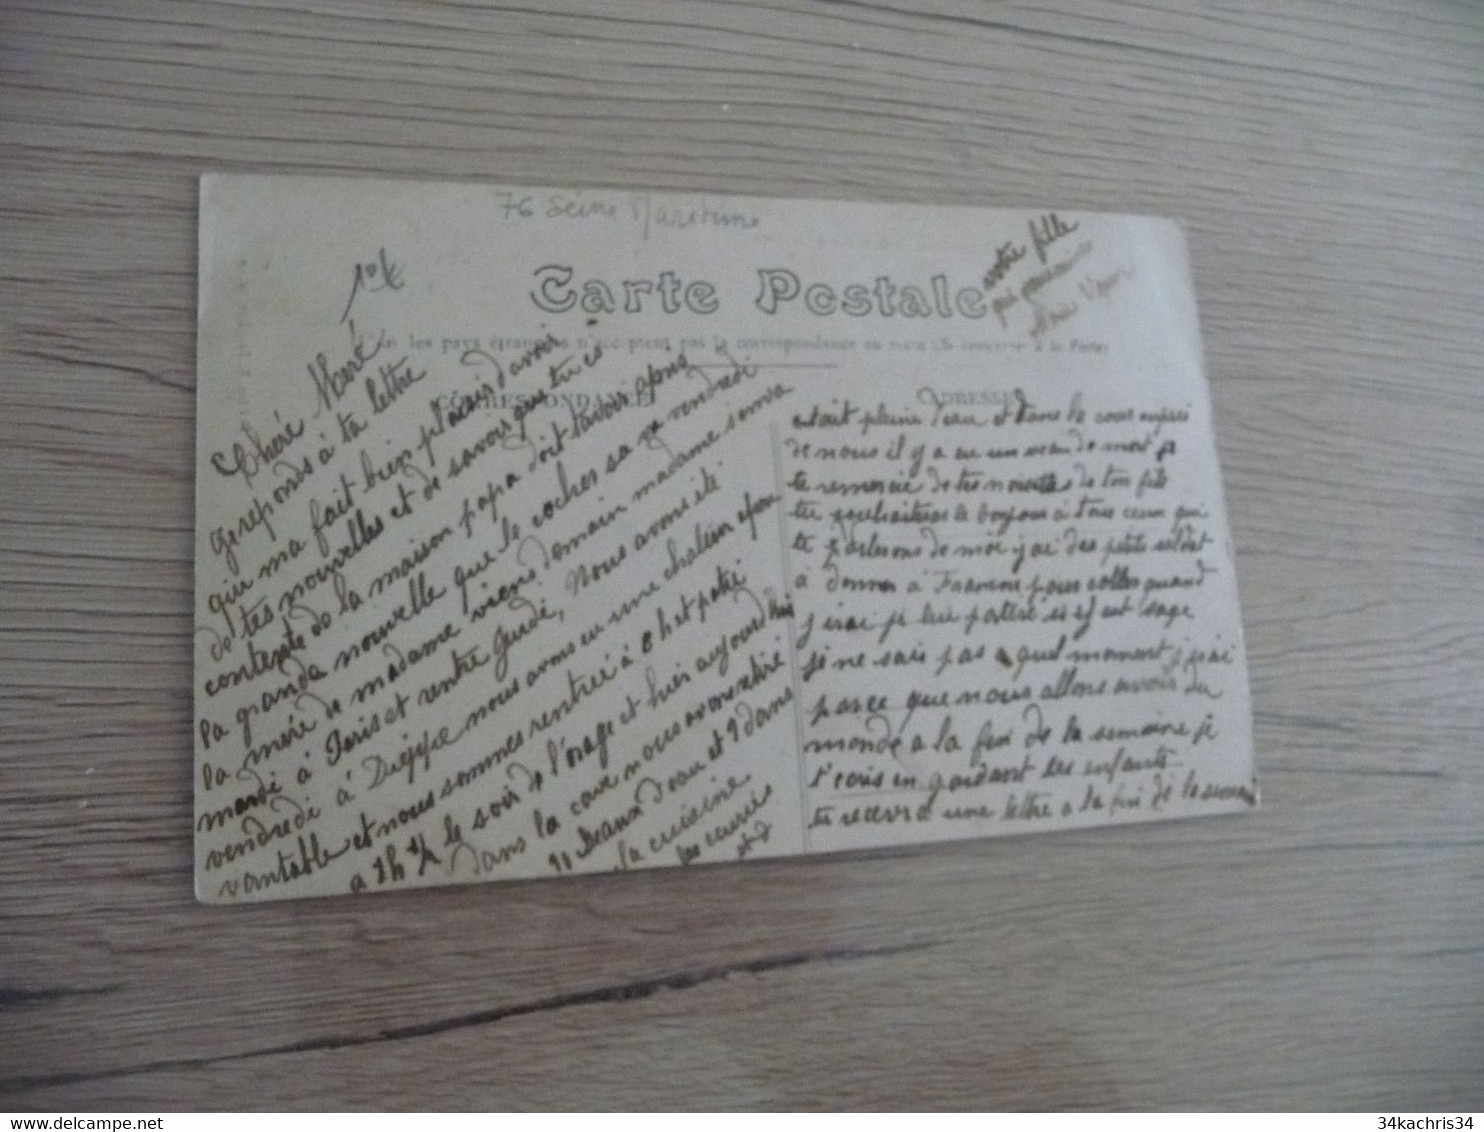 76 Seine Maritime
10€
Carte Postale
les pays étrangers n'acceptent pas la correspondance au recto (Se renseigner à la Poste)
CORRESPONDANCE
ADRESSE
votre fille
qui
Chéré Meré
je reponds à ta lettre
qui ma fait bien plaisir d'avoir
de tes nouvelles et de savoir que tu es
contente de la maison papa doit tavoir apris
la grande nouvelle que le cocher sa va vendredi
la meré de madame viens demain madame sen va
mardi à Paris et rentre jeudi, Nous avons été
vendredi à Dieppe nous avons eu une chaleur epou
vantable et nous sommes rentrée à 8 h et
a 7h ½ le soir de l'orage et hier aujourd'hui
dans la cave nous avons retiré
11 seaux d'eau et 9 dans
la cuisine
les
et
etait pleine d'eau et dans la cour auprès
de nous il y a eu un veau de mort je
te remercie de tes de ton fete
tu souhaiteras le bonjour à tous ceux qui
te parlerons de moi j'ai des petits soldat
à donner à pour coller quand
j'irai je lui porterè si il est sage
je ne sais pas a quel moment j irai
parce que nous allons avoir du
monde a la fin de la semaine je
t'ecris en gardant les enfants
tu recevra une lettre a la fin de la semaine
34kachris34